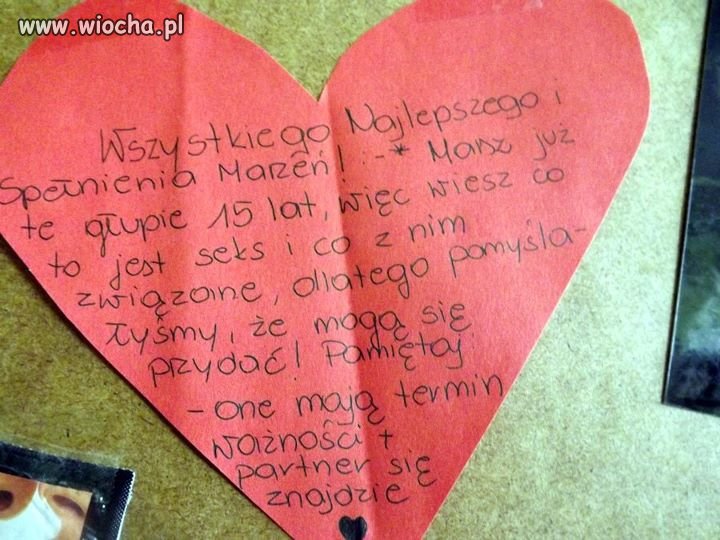 www.wiocha.pl
Wszystkiego Najlepszego i
Spełnienia Marzeń! :-* Masz już
te głupie 15 lat, więc wiesz co
to jest seks i co z nim
związane, dlatego pomyśla-
łyśmy, że mogą się
przydać! Pamiętaj
- one mają termin
ważności +
partner się
znajdzie